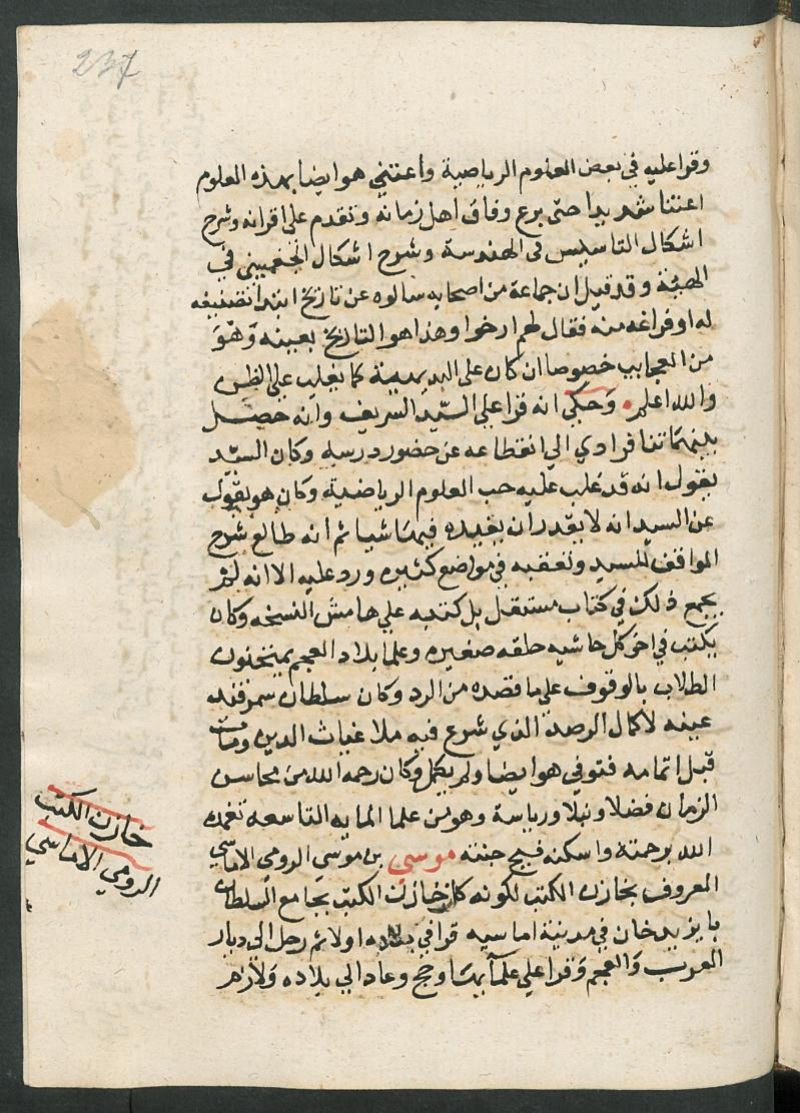 237
وقراعليه في بعض العلوم الرياضية واعتني هوايضا بهذه العلوم
اعتناشديدا حتى برع وفاق اهل زمانه وتقدم على اقرانه وشرح
اشكال التاسيس في الهندسة وشرح اشكال الجغميني في
الهيئة وقد قيل ان جماعة من اصحابه سالوه عن تاريخ ابتدا تصنيفه
له او فراغه منه فقال لهم ارخوا وهذا هو التاريخ بعينه وهو
من العجايب خصوصا ان كان على البديهية كما يغلب على الظن
والله اعلم وحكي انه قرا على السيد الشريف وانه حصل
بينهما تنافر ادي الي انقطاعه عن حضور درسه وكان السيد
يقول انه قد غلب عليه حب العلوم الرياضية وكان هو يقول
عن السيد انه لا يقدر ان يفيده فيها شيا ثم انه طالع شرح
المواقف للسيد وتعقبه في مواضع كثيره ورد عليه الا انه لم
يجمع ذلك في كتاب مستقل بل كتبه علي هامش النسخه وكان
يكتب في اخر كل حاشيه حلقه صغيره وعلما بلاد العجم يمتحنون
الطلاب بالوقوف على ما قصده من الرد وكان سلطان سمرقند
عينه لاكمال الرصد الذي شرع فيه ملا غياث الدين ومات
قبل اتمامه فتوفي هو ايضا ولم يكمل وكان رحمه الله من محاسن
الزمان فضلا ونبلا ورياسة وهو من علما المايه التاسعه تغمده
الله برحمته واسكنه فسيح جنته موسي بن موسي الرومي الاماسي
المعروف بخازن الكتب لكونه كان خازن الكتب بجامع السلطان
بايزيد خان في مدينة اماسيه قرا في بلاده اولا ثم رحل الى ديار
العرب والعجم وقرا علي علمآيهما وحج وعاد الي بلاده ولازم
خازن الكتب
الرومي الاماسي